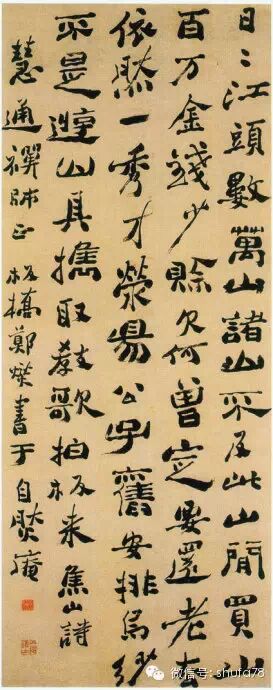 日〻江頭數萬山諸山不及此山閒買山
百万金錢少賒欠何曾定要還老去
依然一秀才滎陽公子舊安排烏紗
不是遊山具攜取教歌拍板来焦山詩
慧通禪師正 板橋鄭燮書于自然庵
微信号: shufa78